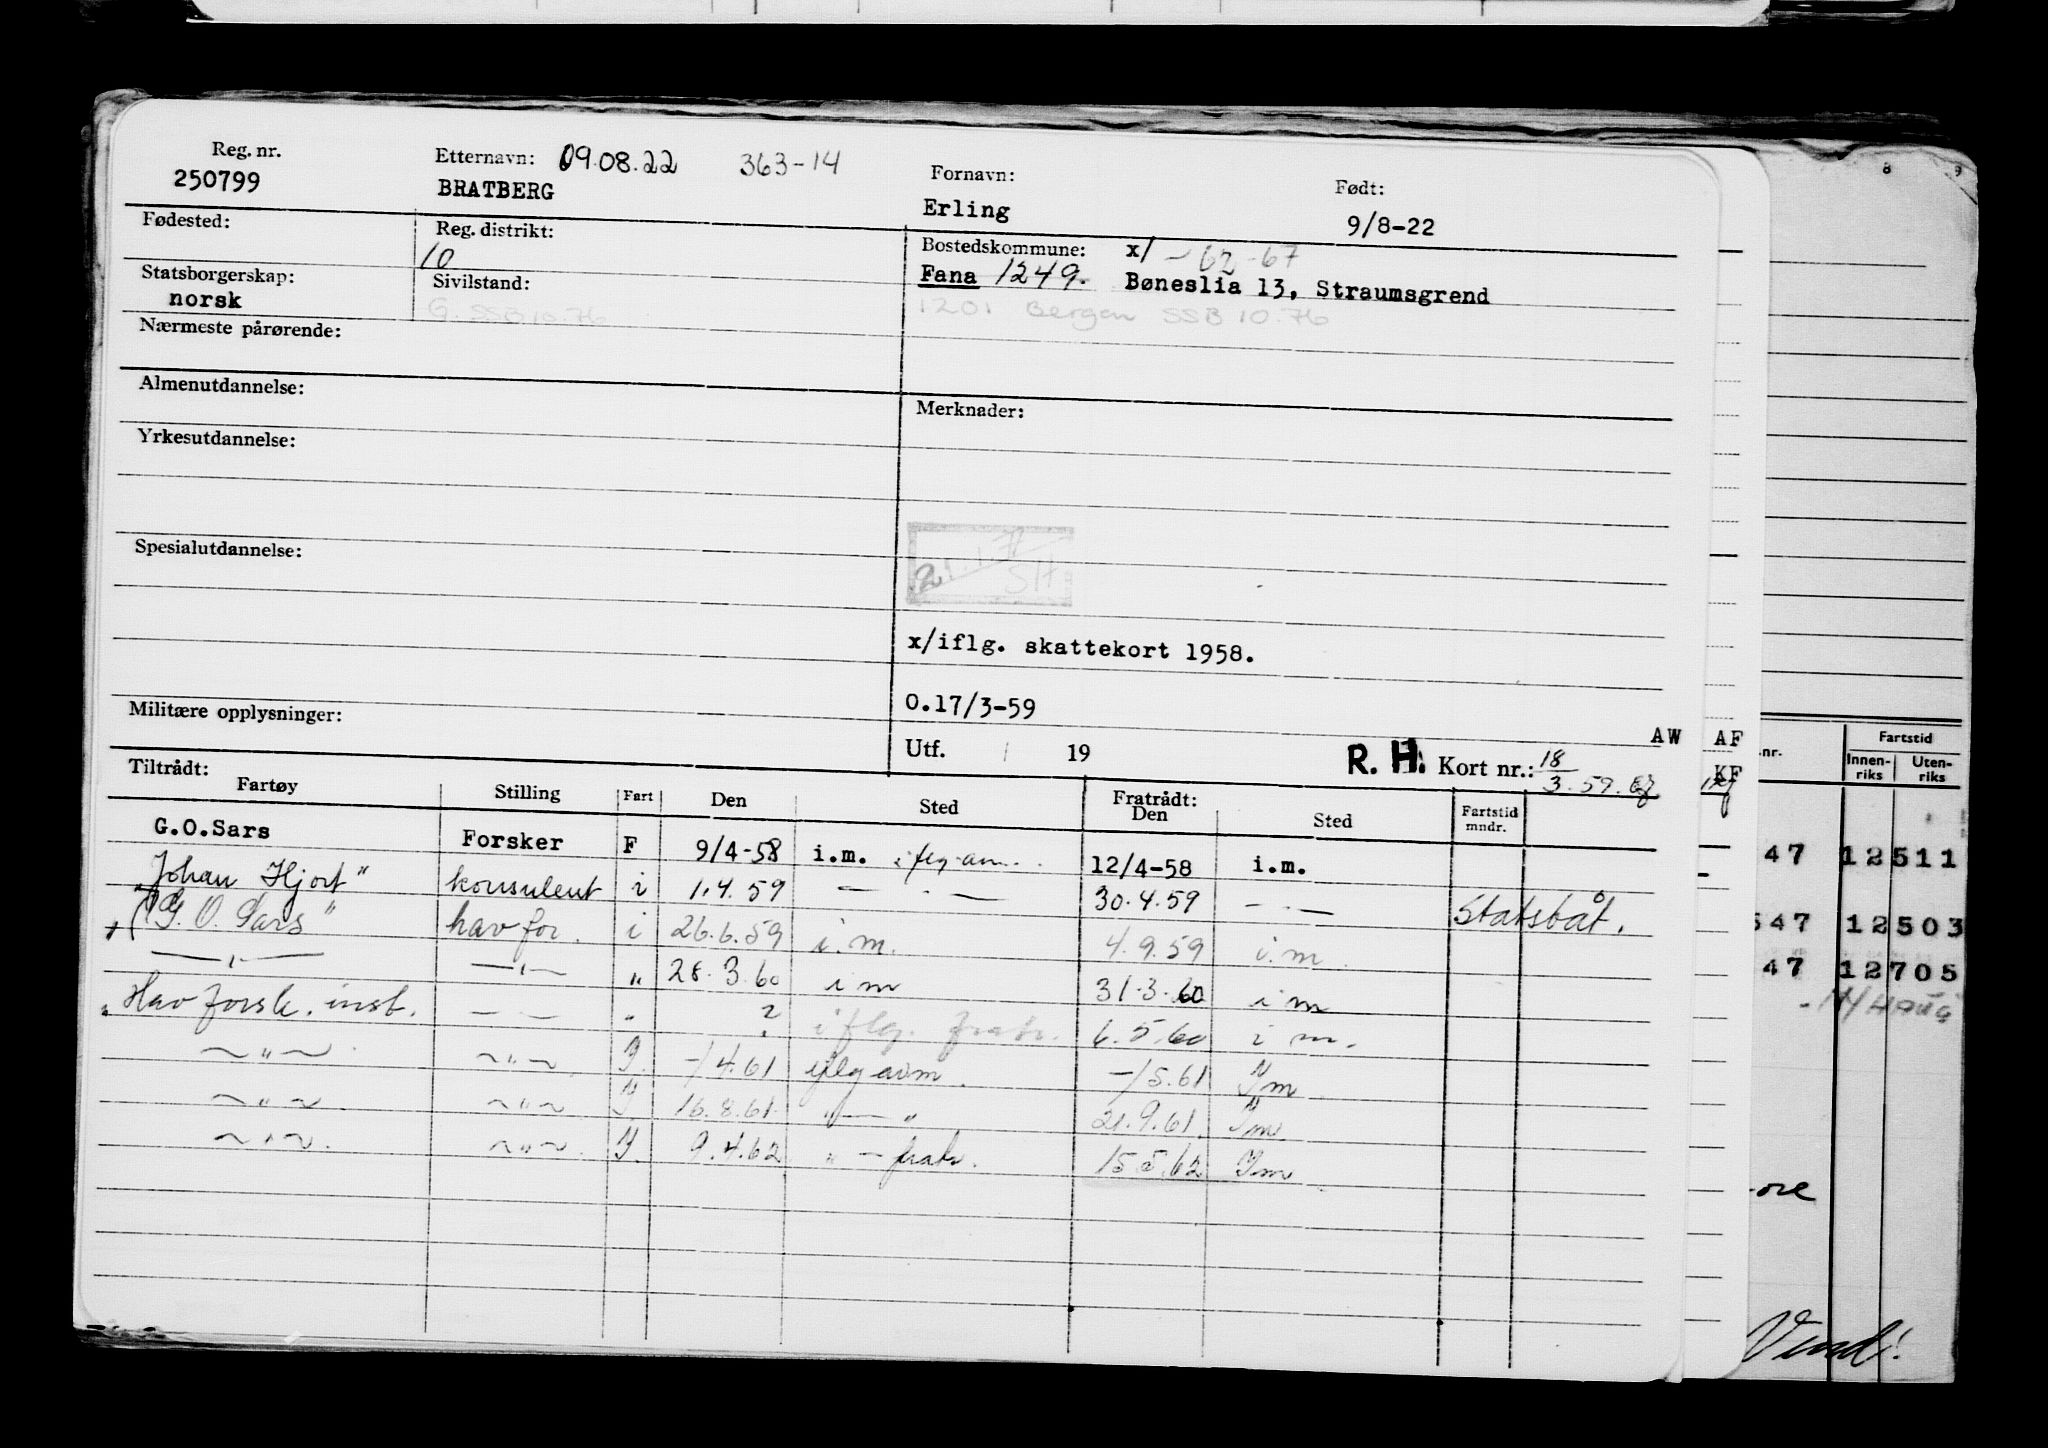 Reg. nr. Etternavn: 09.08.22 363-14 Fornavn: Født:
250799 BRATBERG Erling 9/8-22
Fødested: Reg. distrikt: Bostedskommune: x/ - 62-67
10 Fana 1249. Bøneslia 13, Straumsgrend
Statsborgerskap: Sivilstand: 1201 Bergen SSB 10.76
norsk G. SSB 10.76
Nærmeste pårørende:
Almenutdannelse: Merknader:
Yrkesutdannelse:
Spesialutdannelse:
SH
x/iflg. skattekort 1958.
O.17/3-59
Militære opplysninger: Utf. 19 R. H. Kort nr.: 18/3.59.
AW AF
KF
Tiltrådt: Fratrådt:
Fartøy Stilling Fart Den Sted Den Sted Fartstid mndr.
G.O.Sars Forsker F 9/4-58 i.m. 12/4-58 i.m.
Johan Hjort" konsulent i 1.4.59 — · — 30.4.59 — · —
"G. O. Sars" havfor. i 26.6.59 i.m. 4.9.59 i.m. Statsbåt.
— " — — " — " 28.3.60 i m 31.3.60 i m
" Havforsk. inst. — — " ? iflg. fratr. 6.5.60 i m.
~ " ~ ~ " ~ I -/4.61 iflg avm. -/5.61 Im
~ " ~ ~ " ~ I 16.8.61 " — " 21.9.61. Im
~ " ~ ~ " ~ I. 9.4.62 " — fratr. 15.5.62 Im
8 9
nr. Fartstid
Innen-riks Uten-riks
47 12511
547 12503
47 12705
Vend!